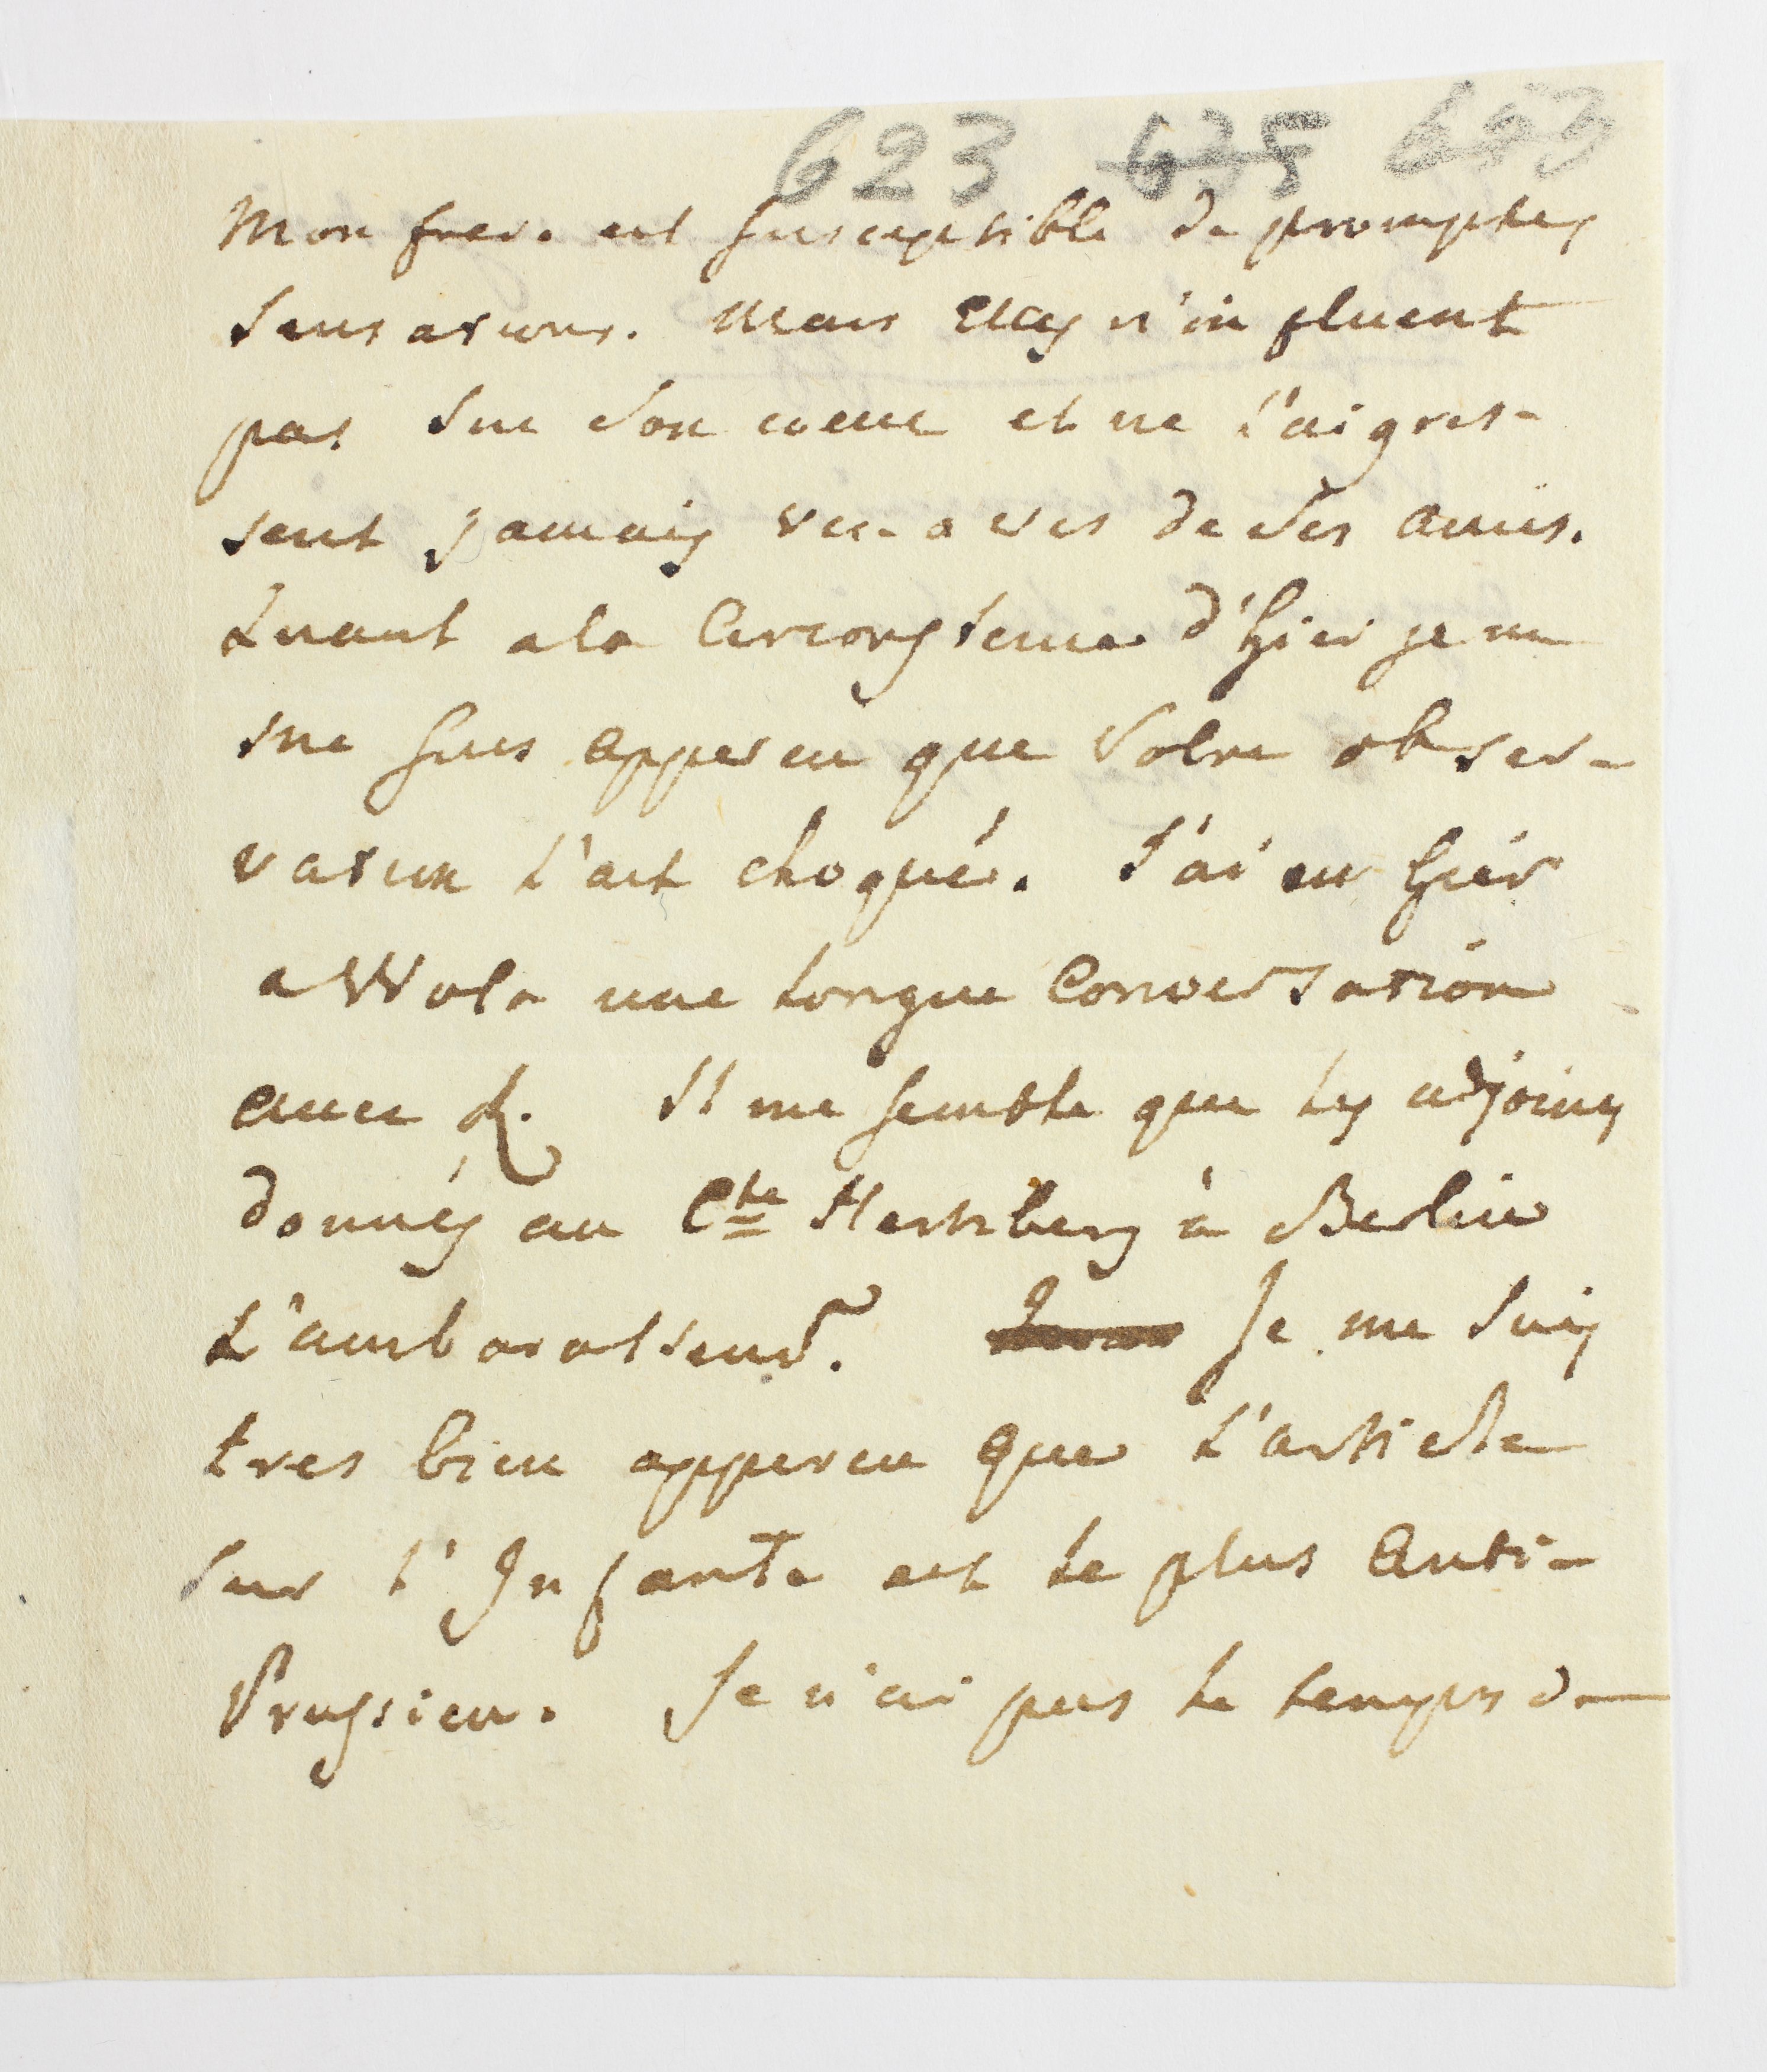 623 635 623
Mon frere est susceptible de promptes
sensations. Mais Elles n'influent
pas sur son coeur et ne l'aigris-
sent jamais vis-a vis de ses amis.
Quant a la Circonstence d'hier je ne
me suis apperçu que Votre obser-
vation l'ait choqué. J'ai eu hier
a Wola une longue Conversation
avec L. Il me semble que les adjoins
donnés au Cte Hertzberg à Berlin
L'embarassent. Je me suis
tres bien apperceu que L'article
sur l'Infante est le plus Anti-
Prussien. Je n'ai pas le temps de